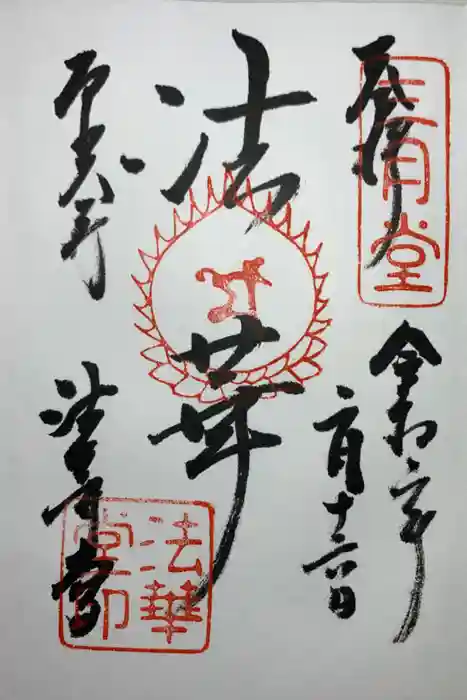 奉拝
三月堂
令和二年
二月十日
法華
東大寺
法華堂
法華堂印